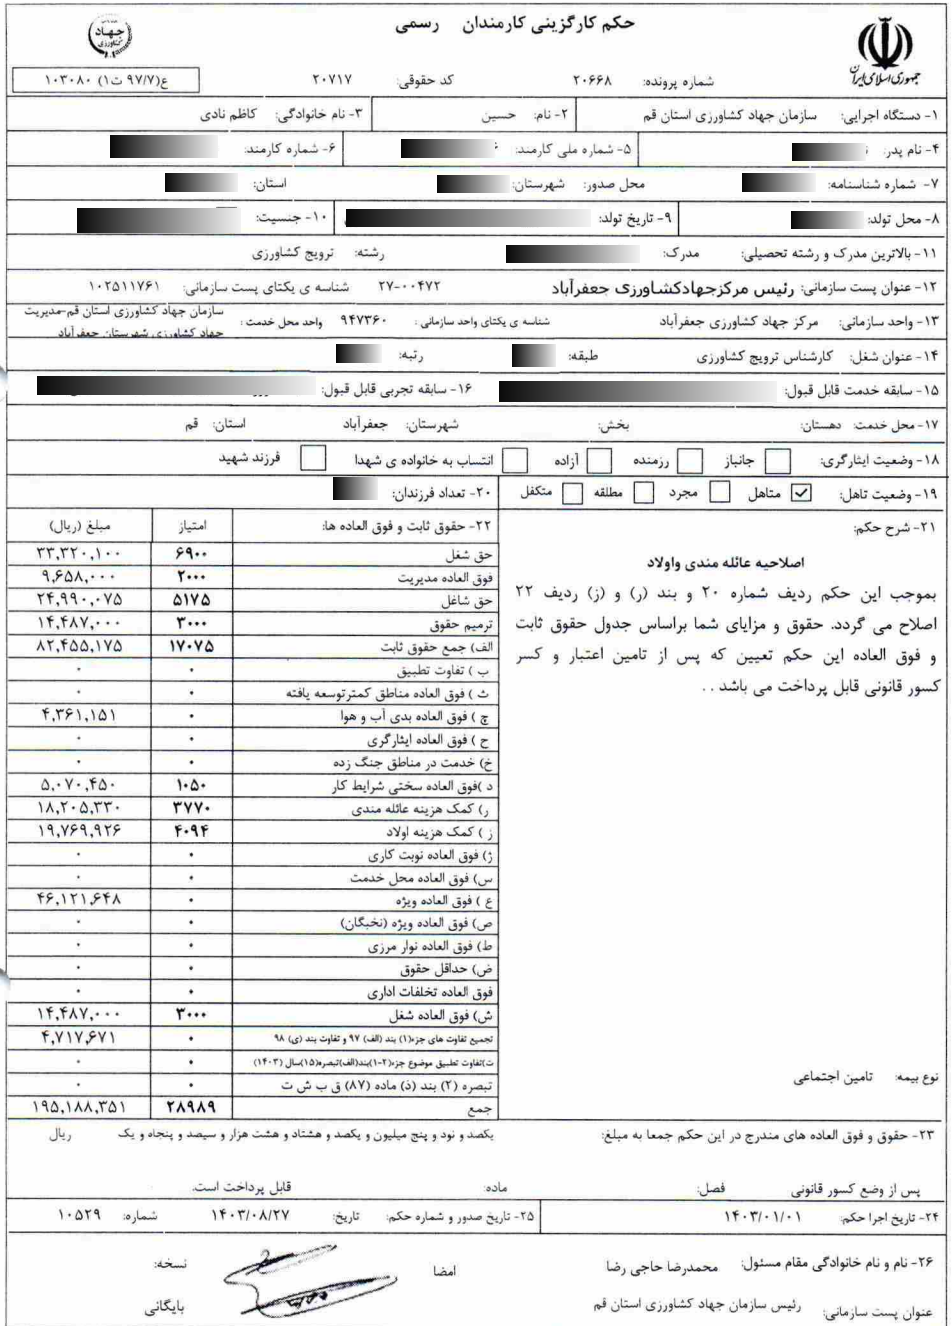 حکم کارگزینی کارمندان رسمی
جهاد
کشاورزی
جمهوری اسلامی ایران
شماره پرونده: ۲۰۶۶۸ کد حقوقی: ۲۰۷۱۷ ع(۹۷/۷ ت۱) ۱۰۳۰۸۰
۱- دستگاه اجرایی: سازمان جهاد کشاورزی استان قم ۲- نام: حسین ۳- نام خانوادگی: کاظم نادی
۴- نام پدر: ۵- شماره ملی کارمند: ۶- شماره کارمند:
۷- شماره شناسنامه: محل صدور: شهرستان: استان:
۸- محل تولد: ۹- تاریخ تولد: ۱۰- جنسیت:
۱۱- بالاترین مدرک و رشته تحصیلی: مدرک: رشته: ترویج کشاورزی
۱۲- عنوان پست سازمانی: رئیس مرکزجهادکشاورزی جعفرآباد ۲۷-۰۰۴۷۲ شناسه ی یکتای پست سازمانی: ۱۰۲۵۱۱۷۶۱
۱۳- واحد سازمانی: مرکز جهاد کشاورزی جعفرآباد شناسه ی یکتای واحد سازمانی: ۹۴۷۳۶۰ واحد محل خدمت: سازمان جهاد کشاورزی استان قم-مدیریت
جهاد کشاورزی شهرستان جعفرآباد
۱۴- عنوان شغل: کارشناس ترویج کشاورزی طبقه: رتبه:
۱۵- سابقه خدمت قابل قبول: ۱۶- سابقه تجربی قابل قبول:
۱۷- محل خدمت: دهستان: بخش: شهرستان: جعفرآباد استان: قم
۱۸- وضعیت ایثارگری: جانباز رزمنده آزاده انتساب به خانواده ی شهدا فرزند شهید
۱۹- وضعیت تاهل: متاهل مجرد مطلقه متکفل ۲۰- تعداد فرزندان:
۲۱- شرح حکم:
اصلاحیه عائله مندی واولاد
بموجب این حکم ردیف شماره ۲۰ و بند (ر) و (ز) ردیف ۲۲
اصلاح می گردد. حقوق و مزایای شما براساس جدول حقوق ثابت
و فوق العاده این حکم تعیین که پس از تامین اعتبار و کسر
کسور قانونی قابل پرداخت می باشد . .
نوع بیمه: تامین اجتماعی
۲۲- حقوق ثابت و فوق العاده ها: امتیاز مبلغ (ریال)
حق شغل ۶۹۰۰ ۳۳,۳۲۰,۱۰۰
فوق العاده مدیریت ۲۰۰۰ ۹,۶۵۸,۰۰۰
حق شاغل ۵۱۷۵ ۲۴,۹۹۰,۰۷۵
ترمیم حقوق ۳۰۰۰ ۱۴,۴۸۷,۰۰۰
الف) جمع حقوق ثابت ۱۷۰۷۵ ۸۲,۴۵۵,۱۷۵
ب ) تفاوت تطبیق ۰ ۰
ث ) فوق العاده مناطق کمترتوسعه یافته ۰ ۰
چ ) فوق العاده بدی آب و هوا ۰ ۴,۳۶۱,۱۵۱
ح ) فوق العاده ایثارگری ۰ ۰
خ) خدمت در مناطق جنگ زده ۰ ۰
د )فوق العاده سختی شرایط کار ۱۰۵۰ ۵,۰۷۰,۴۵۰
ر) کمک هزینه عائله مندی ۳۷۷۰ ۱۸,۲۰۵,۳۳۰
ز ) کمک هزینه اولاد ۴۰۹۴ ۱۹,۷۶۹,۹۲۶
ژ) فوق العاده نوبت کاری ۰ ۰
س) فوق العاده محل خدمت ۰ ۰
ع ) فوق العاده ویژه ۰ ۴۶,۱۲۱,۶۴۸
ص) فوق العاده ویژه (نخبگان) ۰ ۰
ط) فوق العاده نوار مرزی ۰ ۰
ض) حداقل حقوق ۰ ۰
فوق العاده تخلفات اداری ۰ ۰
ش) فوق العاده شغل ۳۰۰۰ ۱۴,۴۸۷,۰۰۰
تجمیع تفاوت های جزء(۱) بند (الف) ۹۷ و تفاوت بند (ی) ۹۸ ۰ ۴,۷۱۷,۶۷۱
ت)تفاوت تطبیق موضوع جزء(۲-۱)بند(الف)تبصره(۱۵)سال (۱۴۰۳) ۰ ۰
تبصره (۲) بند (ذ) ماده (۸۷) ق ب ش ت ۰ ۰
جمع ۲۸۹۸۹ ۱۹۵,۱۸۸,۳۵۱
۲۳- حقوق و فوق العاده های مندرج در این حکم جمعا به مبلغ: یکصد و نود و پنج میلیون و یکصد و هشتاد و هشت هزار و سیصد و پنجاه و یک ریال
پس از وضع کسور قانونی فصل: ماده: قابل پرداخت است.
۲۴- تاریخ اجرا حکم: ۱۴۰۳/۰۱/۰۱ ۲۵- تاریخ صدور و شماره حکم: تاریخ: ۱۴۰۳/۰۸/۲۷ شماره: ۱۰۵۲۹
۲۶- نام و نام خانوادگی مقام مسئول: محمدرضا حاجی رضا امضا نسخه:
عنوان پست سازمانی: رئیس سازمان جهاد کشاورزی استان قم بایگانی